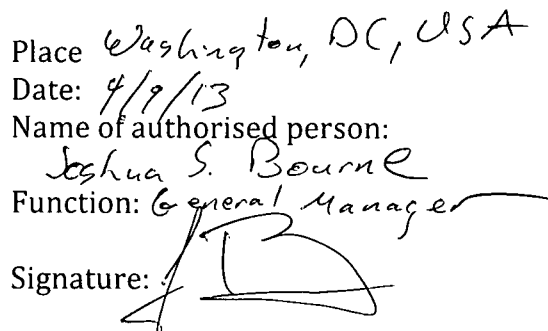 Place Washington, DC, USA
Date: 4/9/13
Name of authorised person:
Joshua S. Bourne
Function: General Manager
Signature: